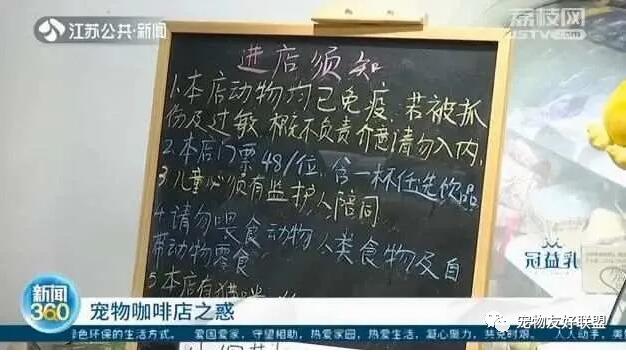 江苏公共·新闻
荔枝网
JSTV.COM
进店须知
1.本店动物均已免疫,若被抓
伤及过敏,概不负责,介意请勿入内,
2.本店门票48/位,含一杯任选饮品
3.儿童必须有监护人陪同
4.请勿喂食动物人类食物及自
带动物零食
5.本店有猫
冠益乳
新闻
360
宠物咖啡店之惑
绿色环保的生活方式。 爱国爱家,守望相助,热爱家园,热爱生活,凝心聚力,共克时艰。 人人动手,美
宠物友好联盟